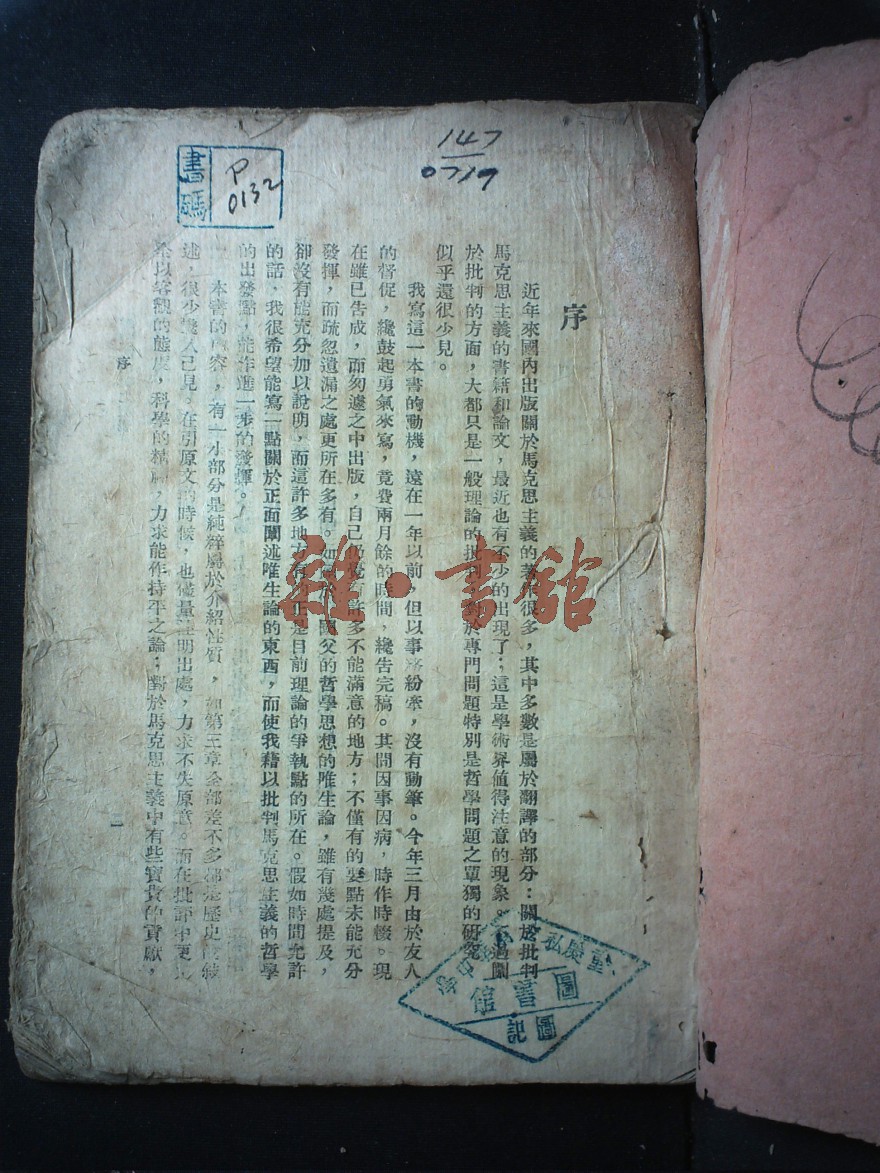 147
0719
書碼
P
0132
序
近年來國內出版關於馬克思主義的著很多，其中多數是屬於翻譯的部分：關於批判
馬克思主義的書籍和論文，最近也有不少的出現了；這是學術界値得注意的現象。過關
於批判的方面，大都只是一般理論的批判，對於專門問題特別是哲學問題之單獨的硏究
似乎還很少見。
我寫這一本書的動機，遠在一年以前，但以事務紛牽，沒有動筆。今年三月由於友人
的督促，纔鼓起勇氣來寫，竟費兩月餘的時間，纔告完稿。其間因事因病，時作時輟。現
在雖已告成，而匆遽之中出版，自己仍覺有許多不能滿意的地方；不僅有的要點未能充分
發揮，而疏忽遺漏之處更所在多有。如國父的哲學思想的唯生論，雖有幾處提及，
卻沒有能充分加以說明，而這許多地方有的正是目前理論的爭執點的所在。假如時間允許
的話，我很希望能寫一點關於正面闡述唯生論的東西，而使我藉以批判馬克思主義的哲學
的出發點，能作進一步的發揮。
本書的內容，有一小部分是純粹屬於介紹性質，如第三章全部差不多都是歷史的敍
述，很少幾人己見。在引原文的時候，也儘量註明出處，力求不失原意。而在批評中更
以客觀的態度，科學的精神，力求能作持平之論；對於馬克思主義中有些寶貴的貢獻，
序
一
雜·書館
重慶私
圖書館
圖記